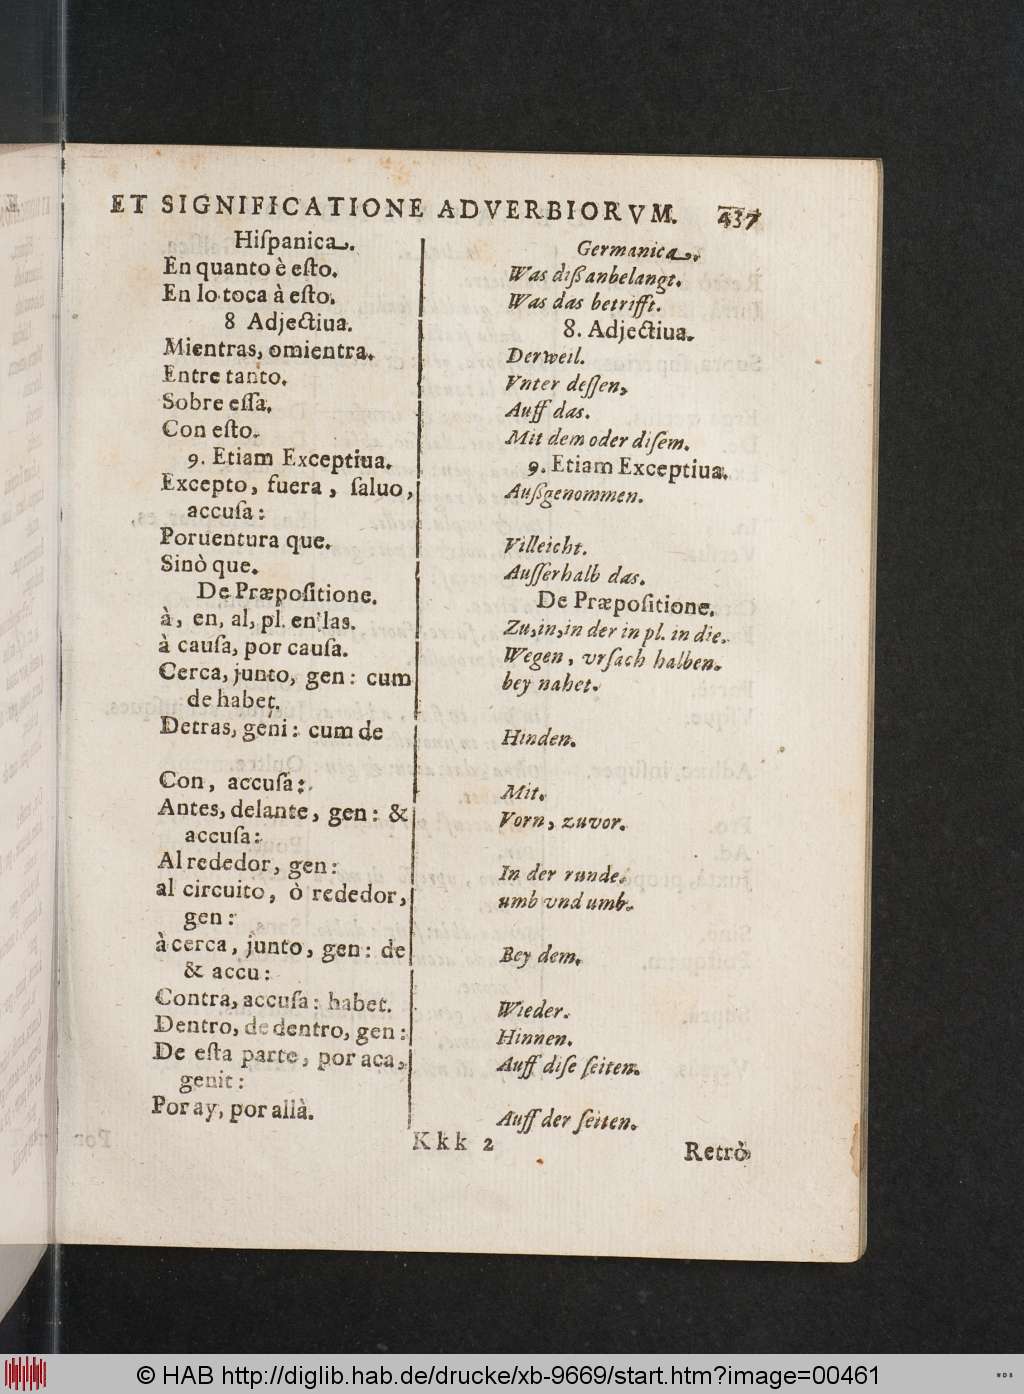 ET SIGNIFICATIONE ADVERBIORVM. 437
Hiſpanica.
En quanto è eſto.
En lo toca à eſto.
8 Adjectiua.
Mientras, omientra.
Entre tanto.
Sobre eſſa.
Con eſto.
9. Etiam Exceptiua.
Excepto, fuera, ſaluo,
accuſa:
Poruentura que.
Sinò que.
De Præpoſitione.
à, en, al, pl. en las.
à cauſa, por cauſa.
Cerca, junto, gen: cum
de habet.
Detras, geni: cum de
Con, accuſa:
Antes, delante, gen: &
accuſa:
Al rededor, gen:
al circuito, ò rededor,
gen:
à cerca, junto, gen: de
& accu:
Contra, accuſa: habet.
Dentro, de dentro, gen:
De eſta parte, por aca,
genit:
Por ay, por allà.
Germanica.
Was diß anbelangt.
Was das betrifft.
8. Adjectiua.
Derweil.
Vnter deſſen,
Auff das.
Mit dem oder diſem.
9. Etiam Exceptiua.
Außgenommen.
Villeicht.
Auſſerhalb das.
De Præpoſitione.
Zu, in, in der in pl. in die.
Wegen, vrſach halben.
bey nahet.
Hinden.
Mit.
Vorn, zuvor.
In der runde.
umb vnd umb.
Bey dem.
Wieder.
Hinnen.
Auff diſe ſeiten.
Auff der ſeiten.
Kkk 2
Retrò
© HAB http://diglib.hab.de/drucke/xb-9669/start.htm?image=00461